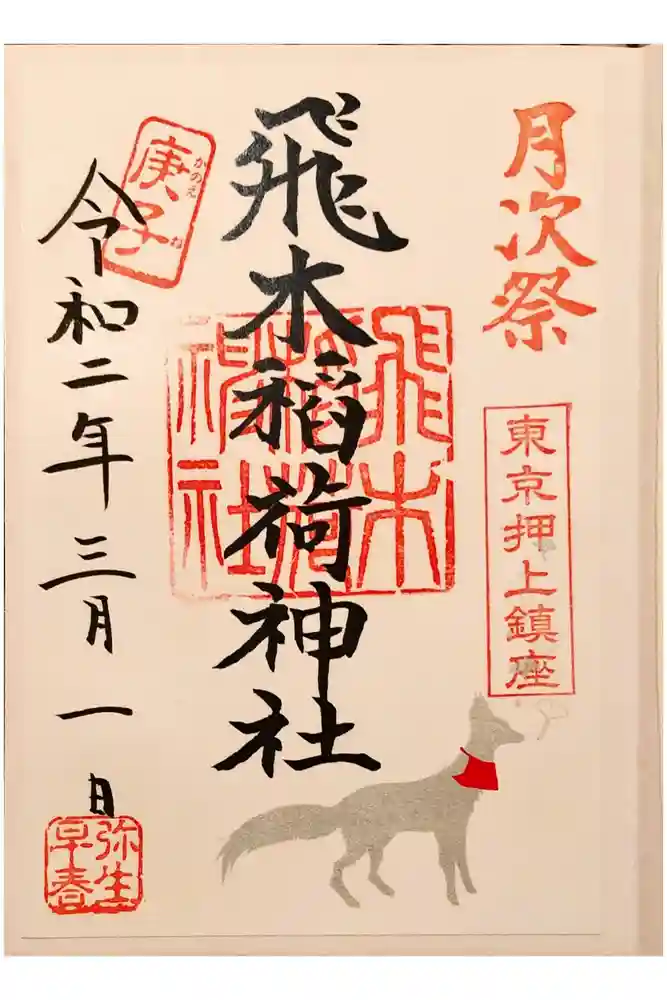 月次祭
東京押上鎮座
飛木稲荷神社
飛木
稲荷
神社
庚子
かのえ
ね
令和二年三月一日
弥生
早春